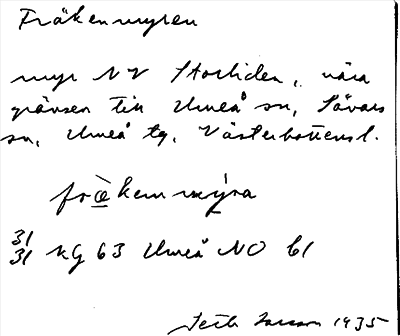 Fräkenmyren
myr NV Storliden, nära
gränsen till Umeå sn, Sävars
sn, Umeå tg, Västerbottensl.
fræ̀kenmýra
31
31 KG 63 Umeå NO 61
1935